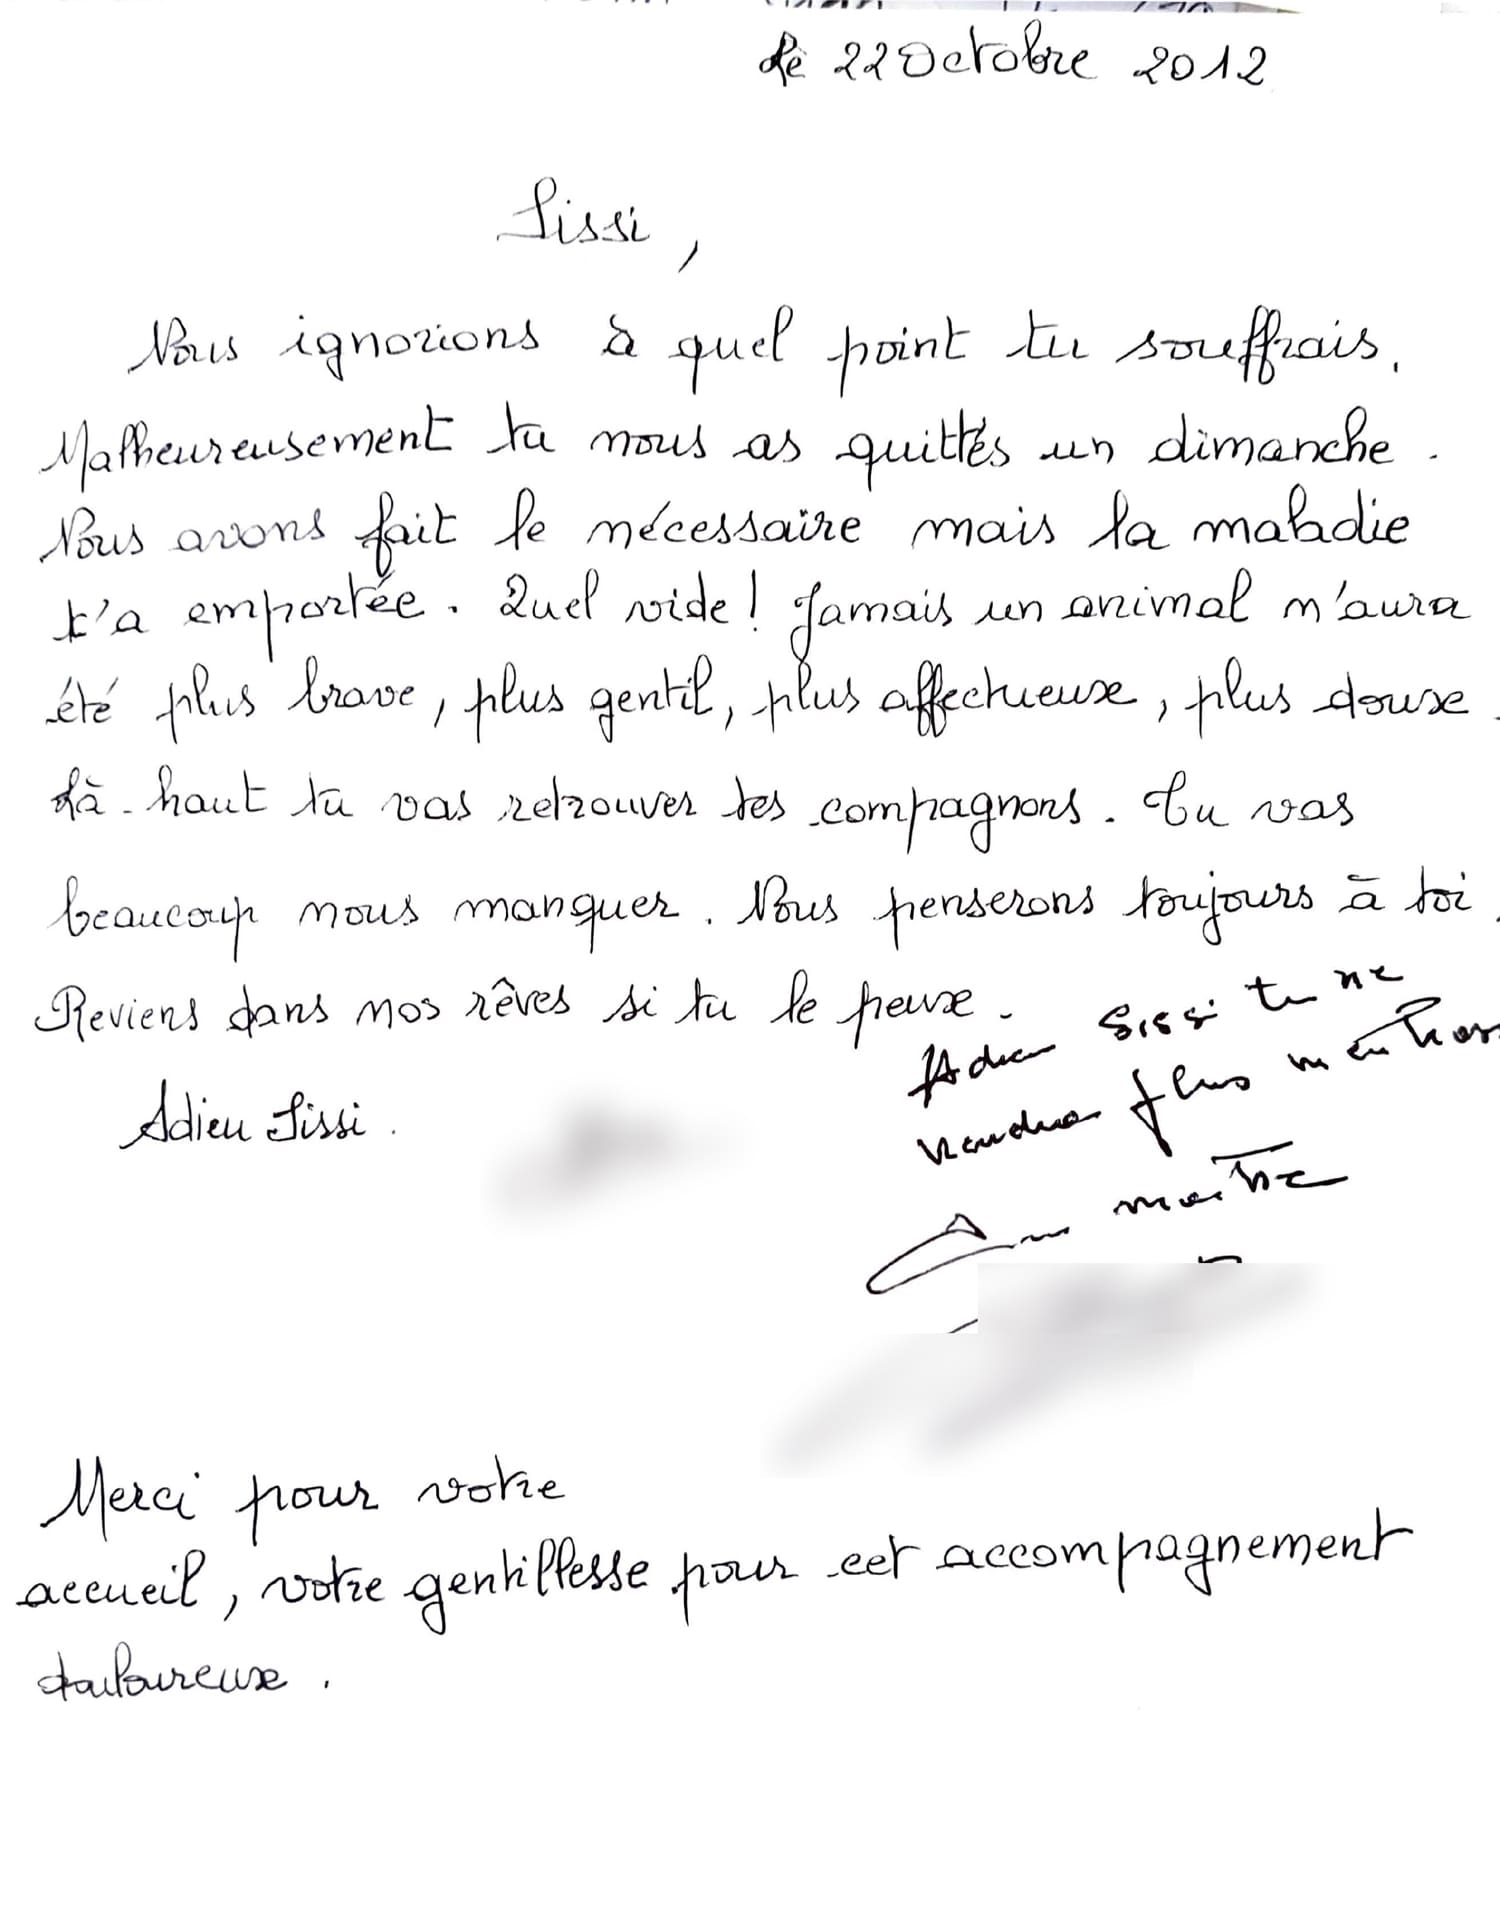 Le 22 Octobre 2012
Sissi,
Nous ignorions à quel point tu souffrais.
Malheureusement tu nous as quittés un dimanche.
Nous avons fait le nécessaire mais la maladie
t'a emportée. Quel vide! Jamais un animal m'aura
été plus brave, plus gentil, plus affectueuse, plus douxe.
Là-haut tu vas retrouver tes compagnons. Tu vas
beaucoup nous manquer. Nous penserons toujours à toi.
Reviens dans nos rêves si tu le peux.
Adieu Sissi tu ne
viendra plus
maître
Adieu Sissi.
Merci pour votre
accueil, votre gentillesse pour cet accompagnement
douloureux.